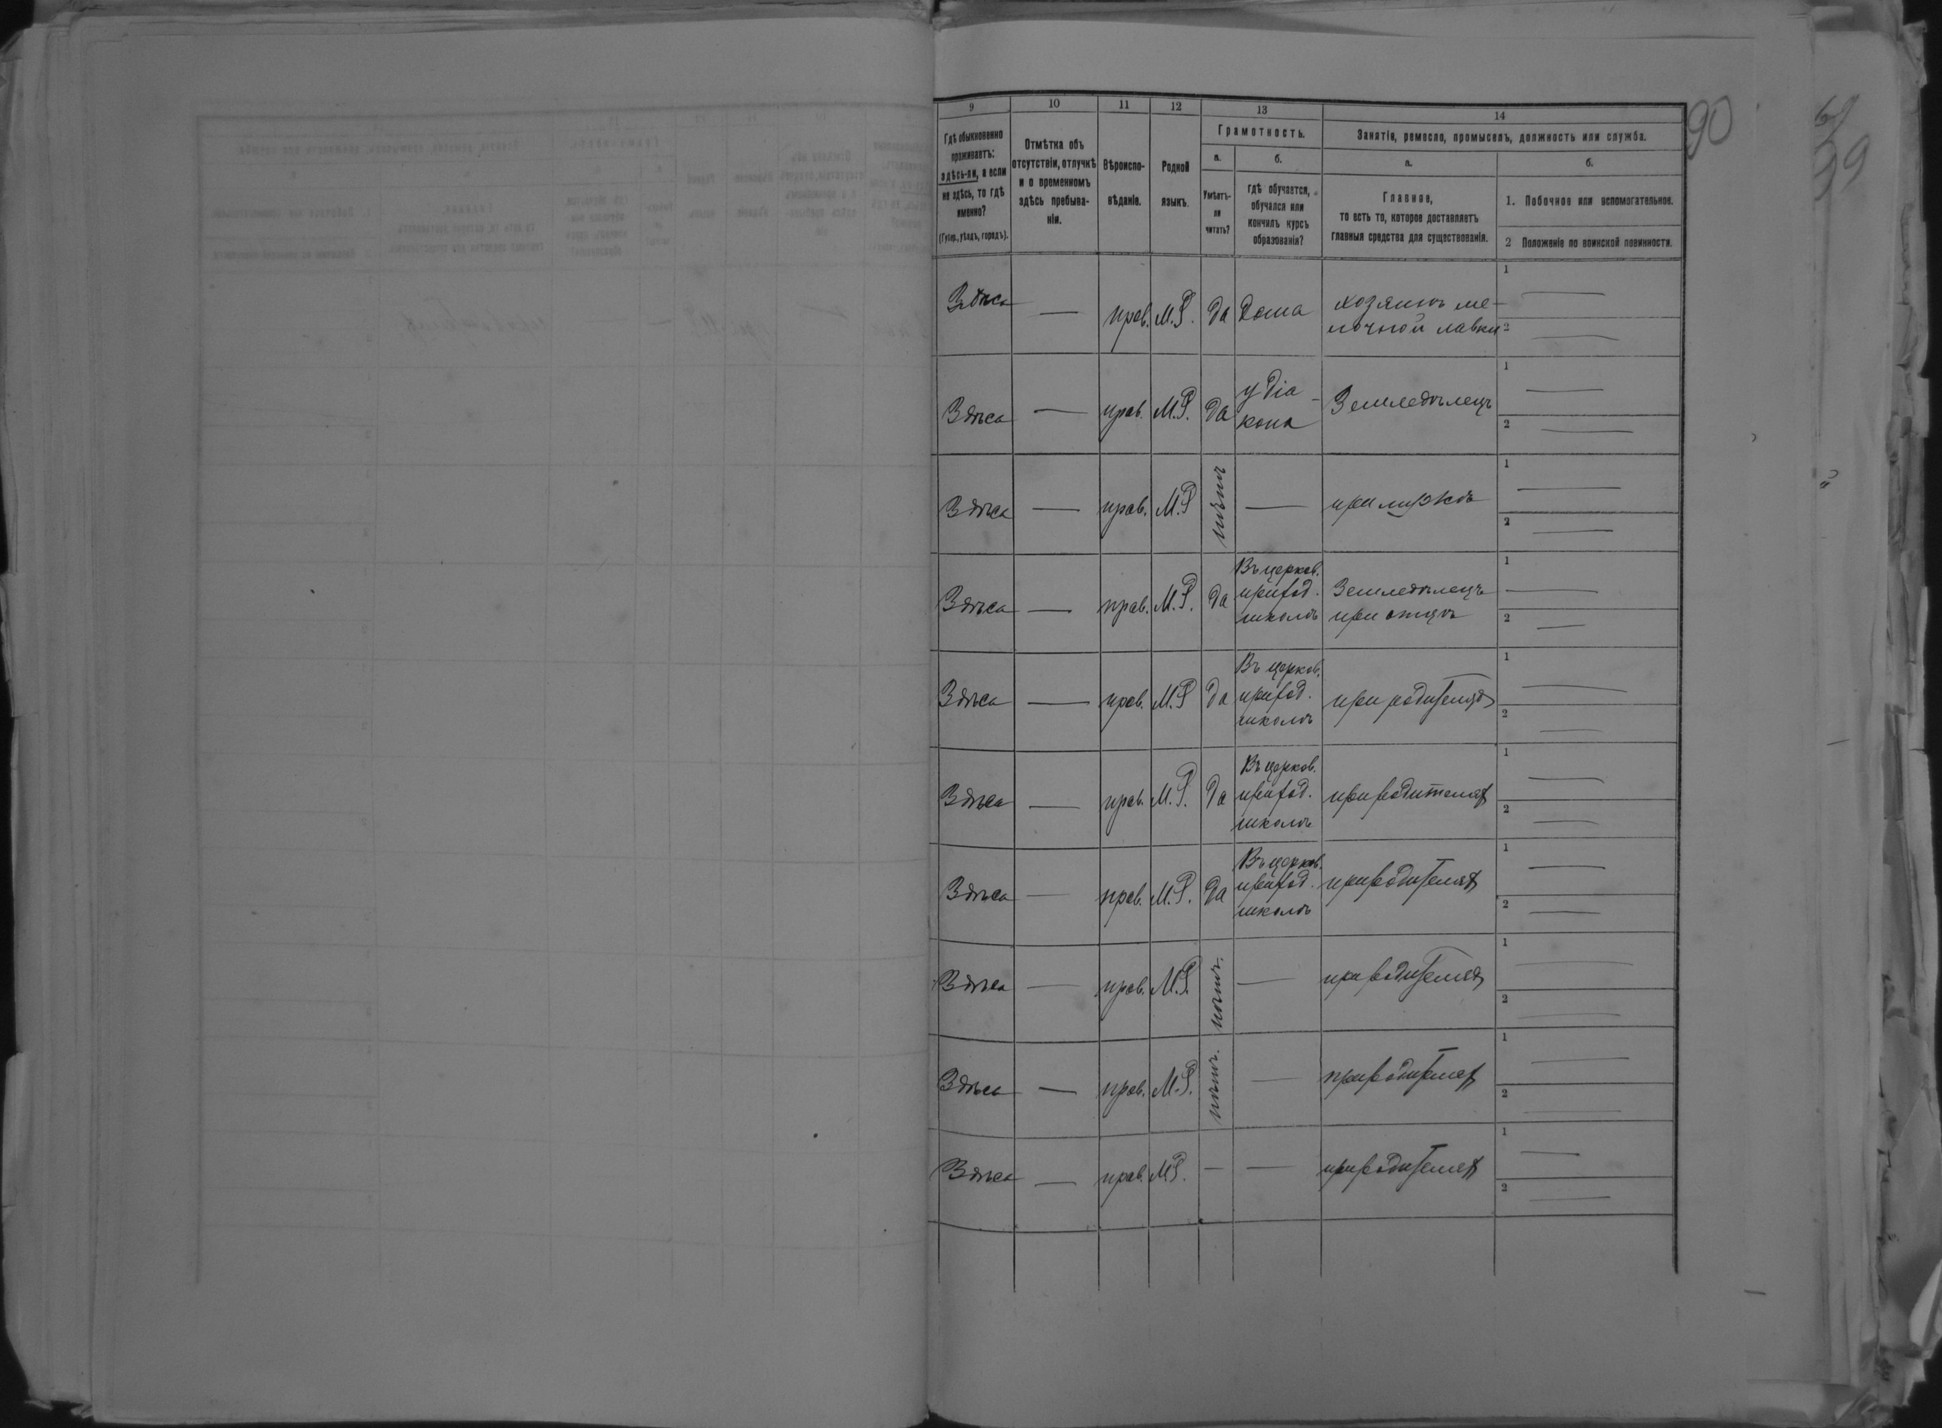 90
9 10 11 12 13 14
Гдѣ обыкновенно
проживаетъ:
здѣсь-ли, а если
не здѣсь, то гдѣ
именно?
(Губер., уѣздъ, городъ).
Отмѣтка объ
отсутствіи, отлучкѣ
и о временномъ
здѣсь пребыва-
ніи.
Вѣроиспо-
вѣданіе.
Родной
языкъ.
Грамотность.
а.
Умѣетъ-
ли
читать?
б.
гдѣ обучается,
обучался или
кончилъ курсъ
образованія?
Занятіе, ремесло, промыселъ, должность или служба.
а.
Главное,
то есть то, которое доставляетъ
главныя средства для существованія.
б.
1. Побочное или вспомогательное.
2 Положеніе по воинской повинности.
Здѣсь — прав. М.Р. да Дома хозяинъ ме-
лочной лавки 1 — 2 —
Здѣсь — прав. М.Р. да у діа-
кона Земледѣлецъ 1 — 2 —
Здѣсь — прав. М.Р — при мужѣ 1 — 2 —
Здѣсь — прав. М.Р. да Въ церков.
приход.
школѣ Земледѣлецъ
при отцѣ 1 — 2 —
Здѣсь — прав. М.Р да Въ церков.
приход.
школѣ при родителях 1 — 2 —
Здѣсь — прав. М.Р. да Въ церков.
приход.
школѣ при родителях 1 — 2 —
Здѣсь — прав. М.Р. да Въ церков.
приход.
школѣ при родителях 1 — 2 —
Здѣсь — прав. М.Р. — при родителях 1 — 2 —
Здѣсь — прав. М.Р. — при родителях 1 — 2 —
Здѣсь — прав. М.Р. — — при родителях 1 — 2 —